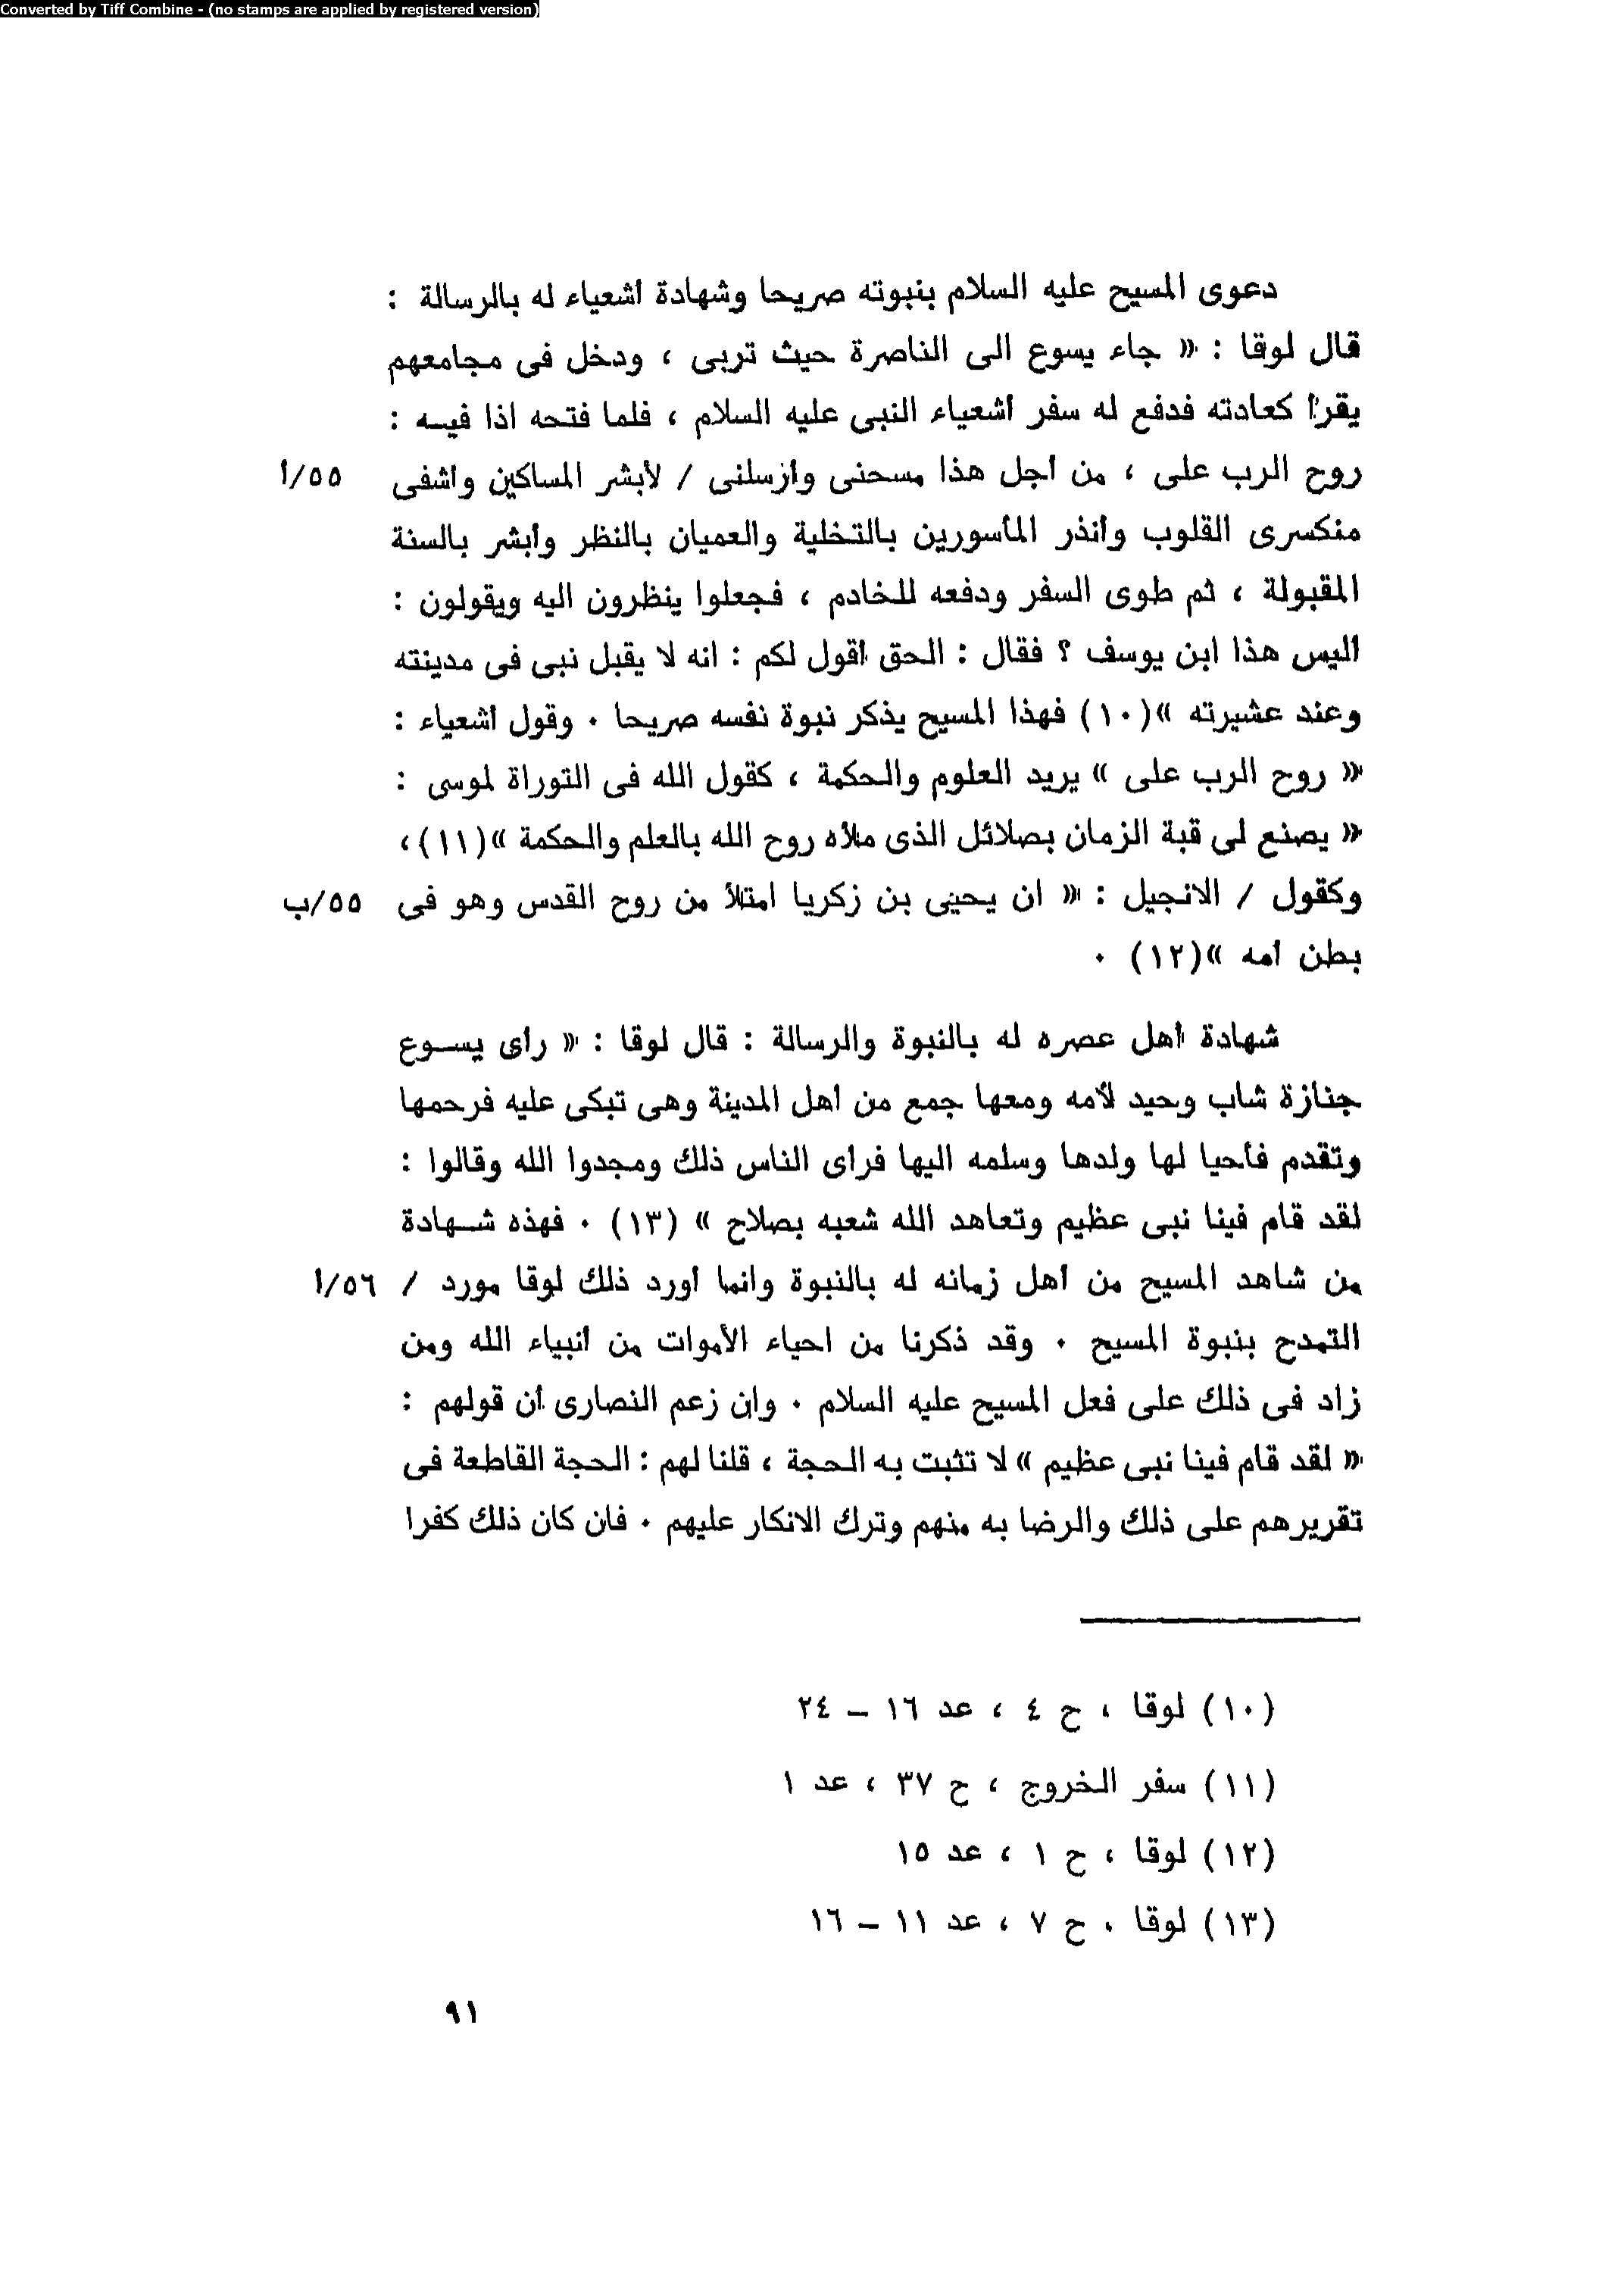 Converted by Tiff Combine - (no stamps are applied by registered version)
دعوى المسيح عليه السلام بنبوته صريحا وشهادة أشعياء له بالرسالة :
قال لوقا : « جاء يسوع الى الناصرة حيث تربى ، ودخل فى مجامعهم
يقرأ كعادته فدفع له سفر أشعياء النبى عليه السلام ، فلما فتحه اذا فيـه :
روح الرب على ، من أجل هذا مسحنى وأرسلنى / لأبشر المساكين وأشفى ٥٥/أ
منكسرى القلوب وأنذر المأسورين بالتخلية والعميان بالنظر وأبشر بالسنة
المقبولة ، ثم طوى السفر ودفعه للخادم ، فجعلوا ينظرون اليه ويقولون :
أليس هذا ابن يوسف ؟ فقال : الحق أقول لكم : انه لا يقبل نبى فى مدينته
وعند عشيرته »(١٠) فهذا المسيح يذكر نبوة نفسه صريحا ٠ وقول أشعياء :
« روح الرب على » يريد العلوم والحكمة ، كقول الله فى التوراة لموسى :
« يصنع لى قبة الزمان بصلائل الذى ملأه روح الله بالعلم والحكمة »(١١)،
وكقول / الانجيل : « ان يحيى بن زكريا امتلأ من روح القدس وهو فى ٥٥/ب
بطن أمه »(١٢) ٠
شهادة أهل عصره له بالنبوة والرسالة : قال لوقا : « رأى يســوع
جنازة شاب وحيد لأمه ومعها جمع من أهل المدينة وهى تبكى عليه فرحمها
وتقدم فأحيا لها ولدها وسلمه اليها فرأى الناس ذلك ومجدوا الله وقالوا :
لقد قام فينا نبى عظيم وتعاهد الله شعبه بصلاح » (١٣) ٠ فهذه شــهادة
من شاهد المسيح من أهل زمانه له بالنبوة وانما أورد ذلك لوقا مورد / ٥٦/أ
التمدح بنبوة المسيح ٠ وقد ذكرنا من احياء الأموات من أنبياء الله ومن
زاد فى ذلك على فعل المسيح عليه السلام ٠ وان زعم النصارى أن قولهم :
« لقد قام فينا نبى عظيم » لا تثبت به الحجة ، قلنا لهم : الحجة القاطعة فى
تقريرهم على ذلك والرضا به منهم وترك الانكار عليهم ٠ فان كان ذلك كفرا
(١٠) لوقا ، ح ٤ ، عد ١٦ – ٢٤
(١١) سفر الخروج ، ح ٣٧ ، عد ١
(١٢) لوقا ، ح ١ ، عد ١٥
(١٣) لوقا ، ح ٧ ، عد ١١ – ١٦
٩١